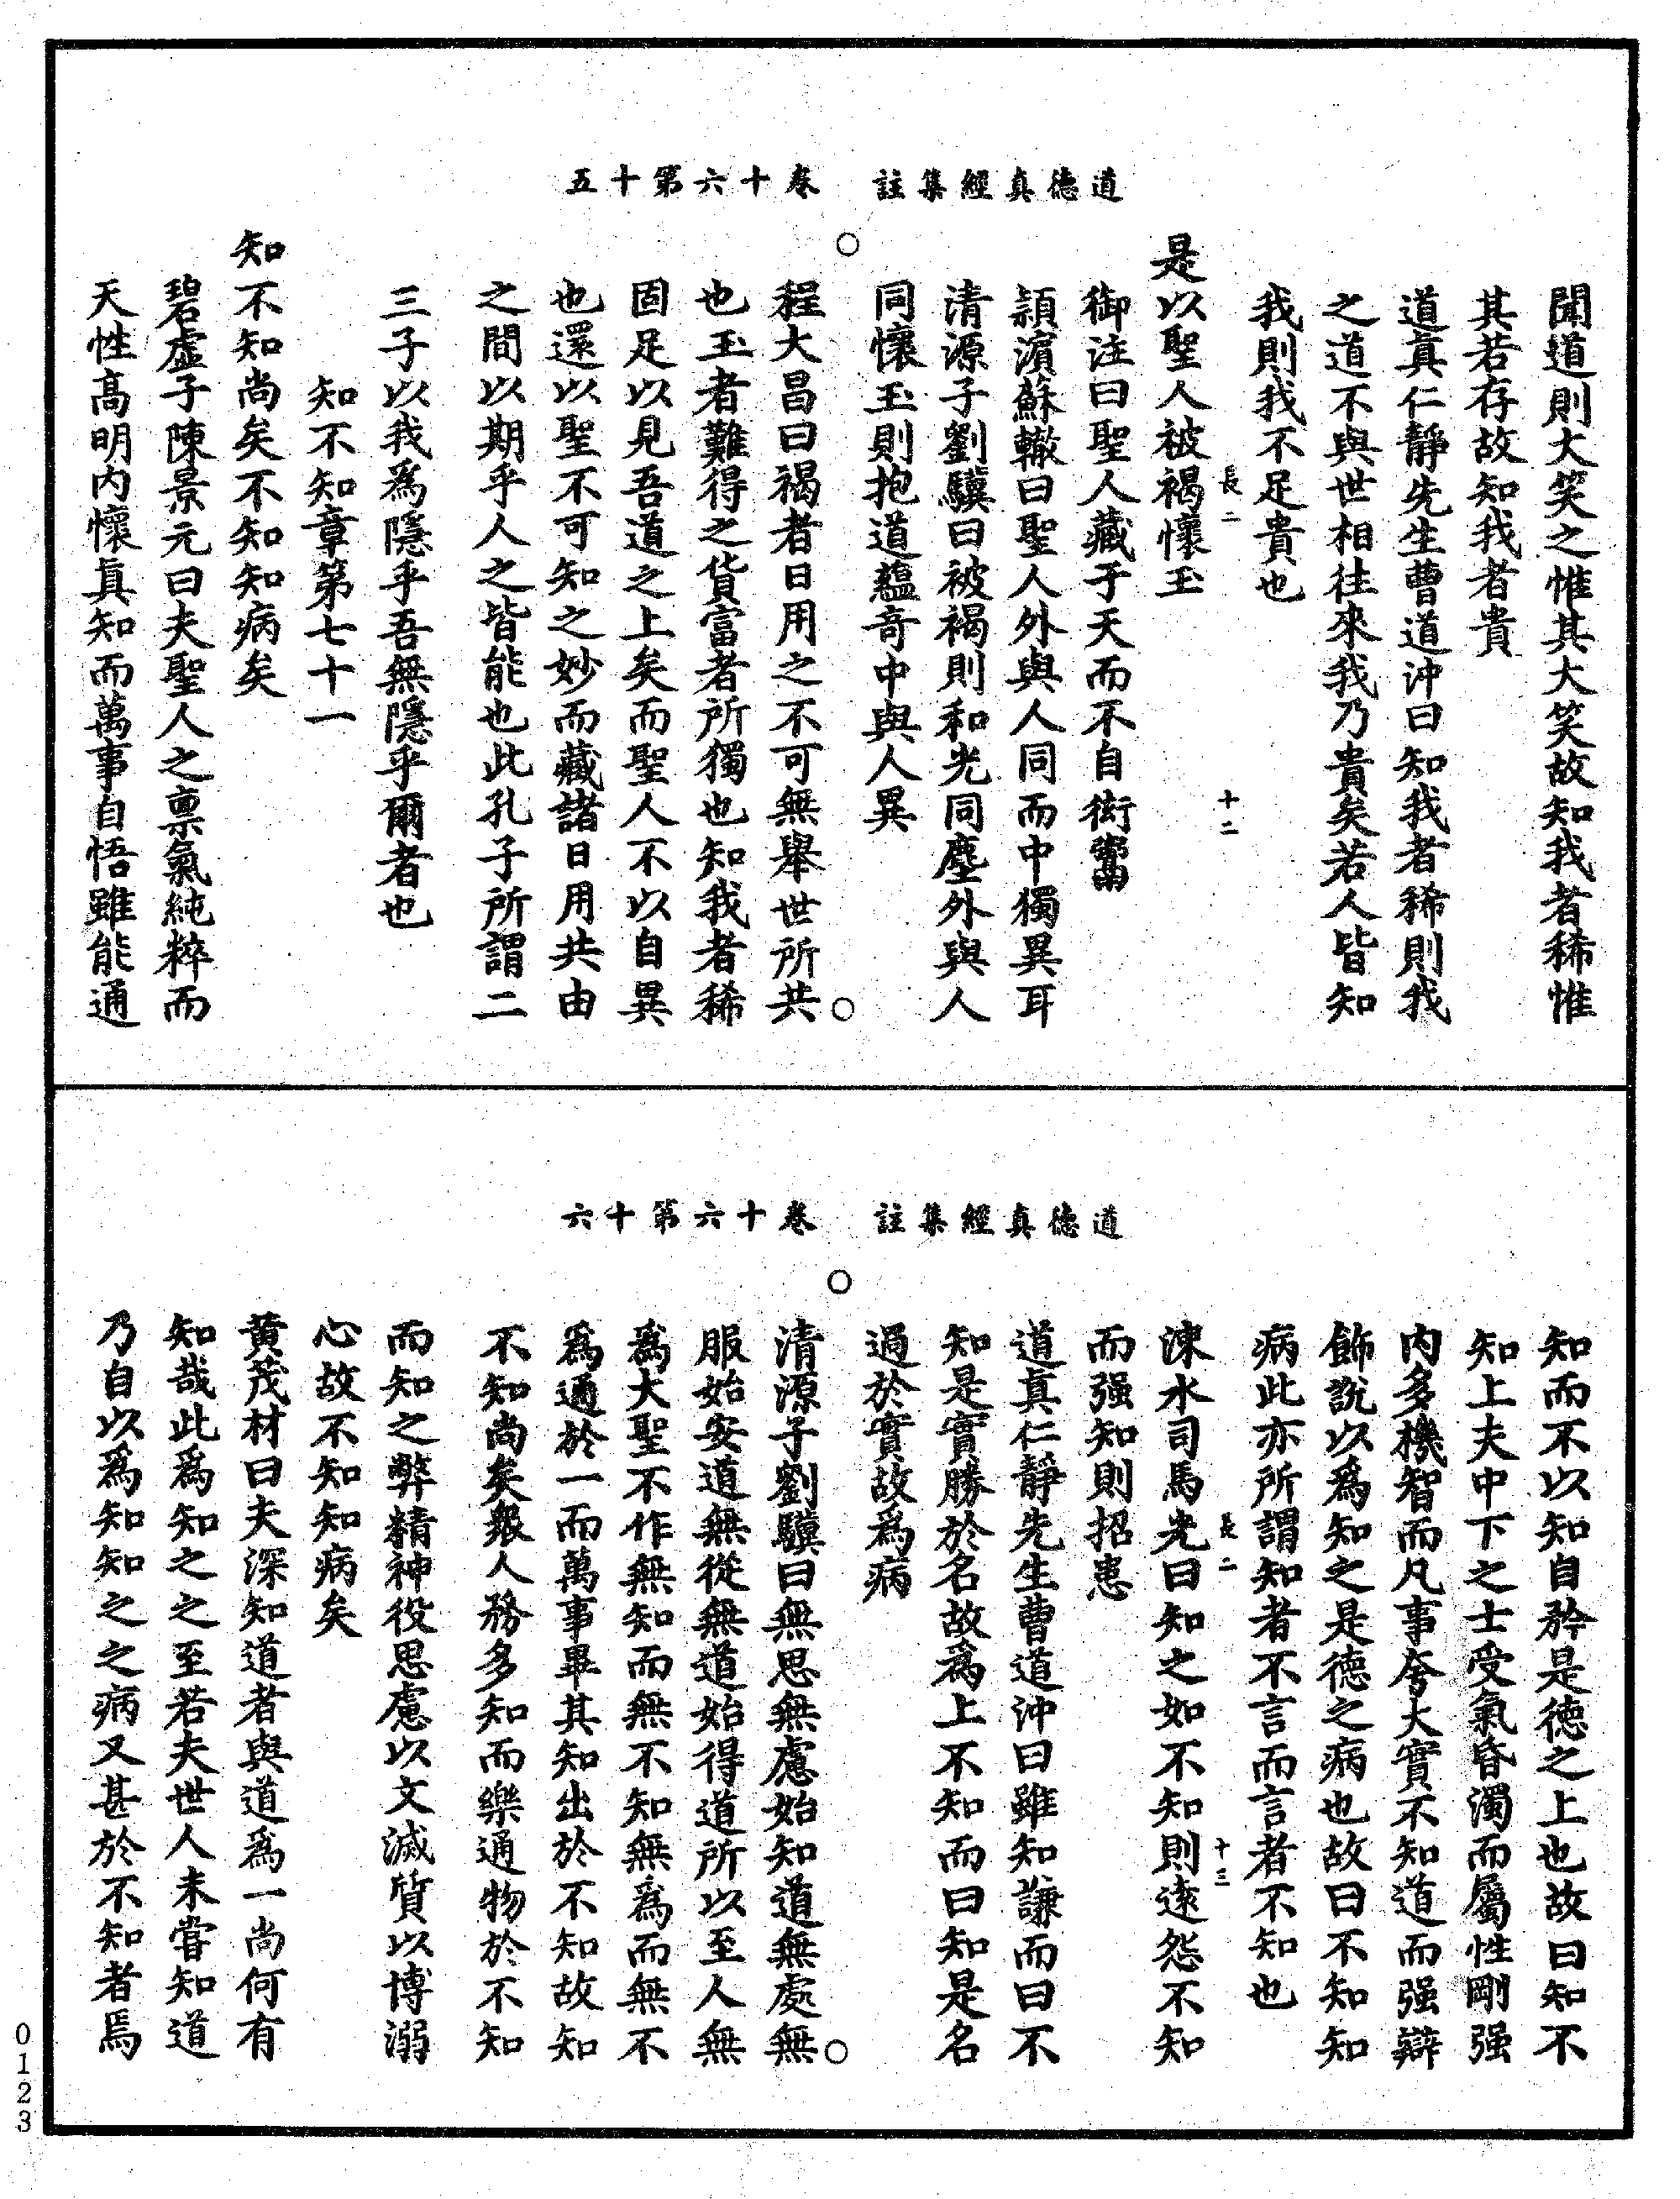 道德真經集註　卷十六第十五
聞道則大笑之惟其大笑故知我者稀惟
其若存故知我者貴
道真仁靜先生曹道沖曰知我者稀則我
之道不與世相往來我乃貴矣若人皆知
我則我不足貴也
長二　十二
是以聖人被褐懷玉
御注曰聖人藏于天而不自衒鬻
潁濱蘇轍曰聖人外與人同而中獨異耳
清源子劉驥曰被褐則和光同塵外與人
同懷玉則抱道蘊奇中與人異
程大昌曰褐者日用之不可無舉世所共
也玉者難得之貨富者所獨也知我者稀
固足以見吾道之上矣而聖人不以自異
也還以聖不可知之妙而藏諸日用共由
之間以期乎人之皆能也此孔子所謂二
三子以我爲隱乎吾無隱乎爾者也
知不知章第七十一
知不知尚矣不知知病矣
碧虛子陳景元曰夫聖人之禀氣純粹而
天性高明内懷真知而萬事自悟雖能通
道德真經集註　卷十六第十六
知而不以知自矜是德之上也故曰知不
知上夫中下之士受氣昏濁而屬性剛强
内多機智而凡事夸大實不知道而强辯
飾說以爲知之是德之病也故曰不知知
病此亦所謂知者不言而言者不知也
長二　十三
涑水司馬光曰知之如不知則遠怨不知
而强知則招患
道真仁靜先生曹道沖曰雖知謙而曰不
知是實勝於名故爲上不知而曰知是名
過於實故爲病
清源子劉驥曰無思無慮始知道無處無
服始安道無從無道始得道所以至人無
爲大聖不作無知而無不知無爲而無不
爲通於一而萬事畢其知出於不知故知
不知尚矣衆人務多知而樂通物於不知
而知之弊精神役思慮以文滅質以博溺
心故不知知病矣
黄茂材曰夫深知道者與道爲一尚何有
知哉此爲知之之至若夫世人未嘗知道
乃自以爲知知之之病又甚於不知者焉
0123